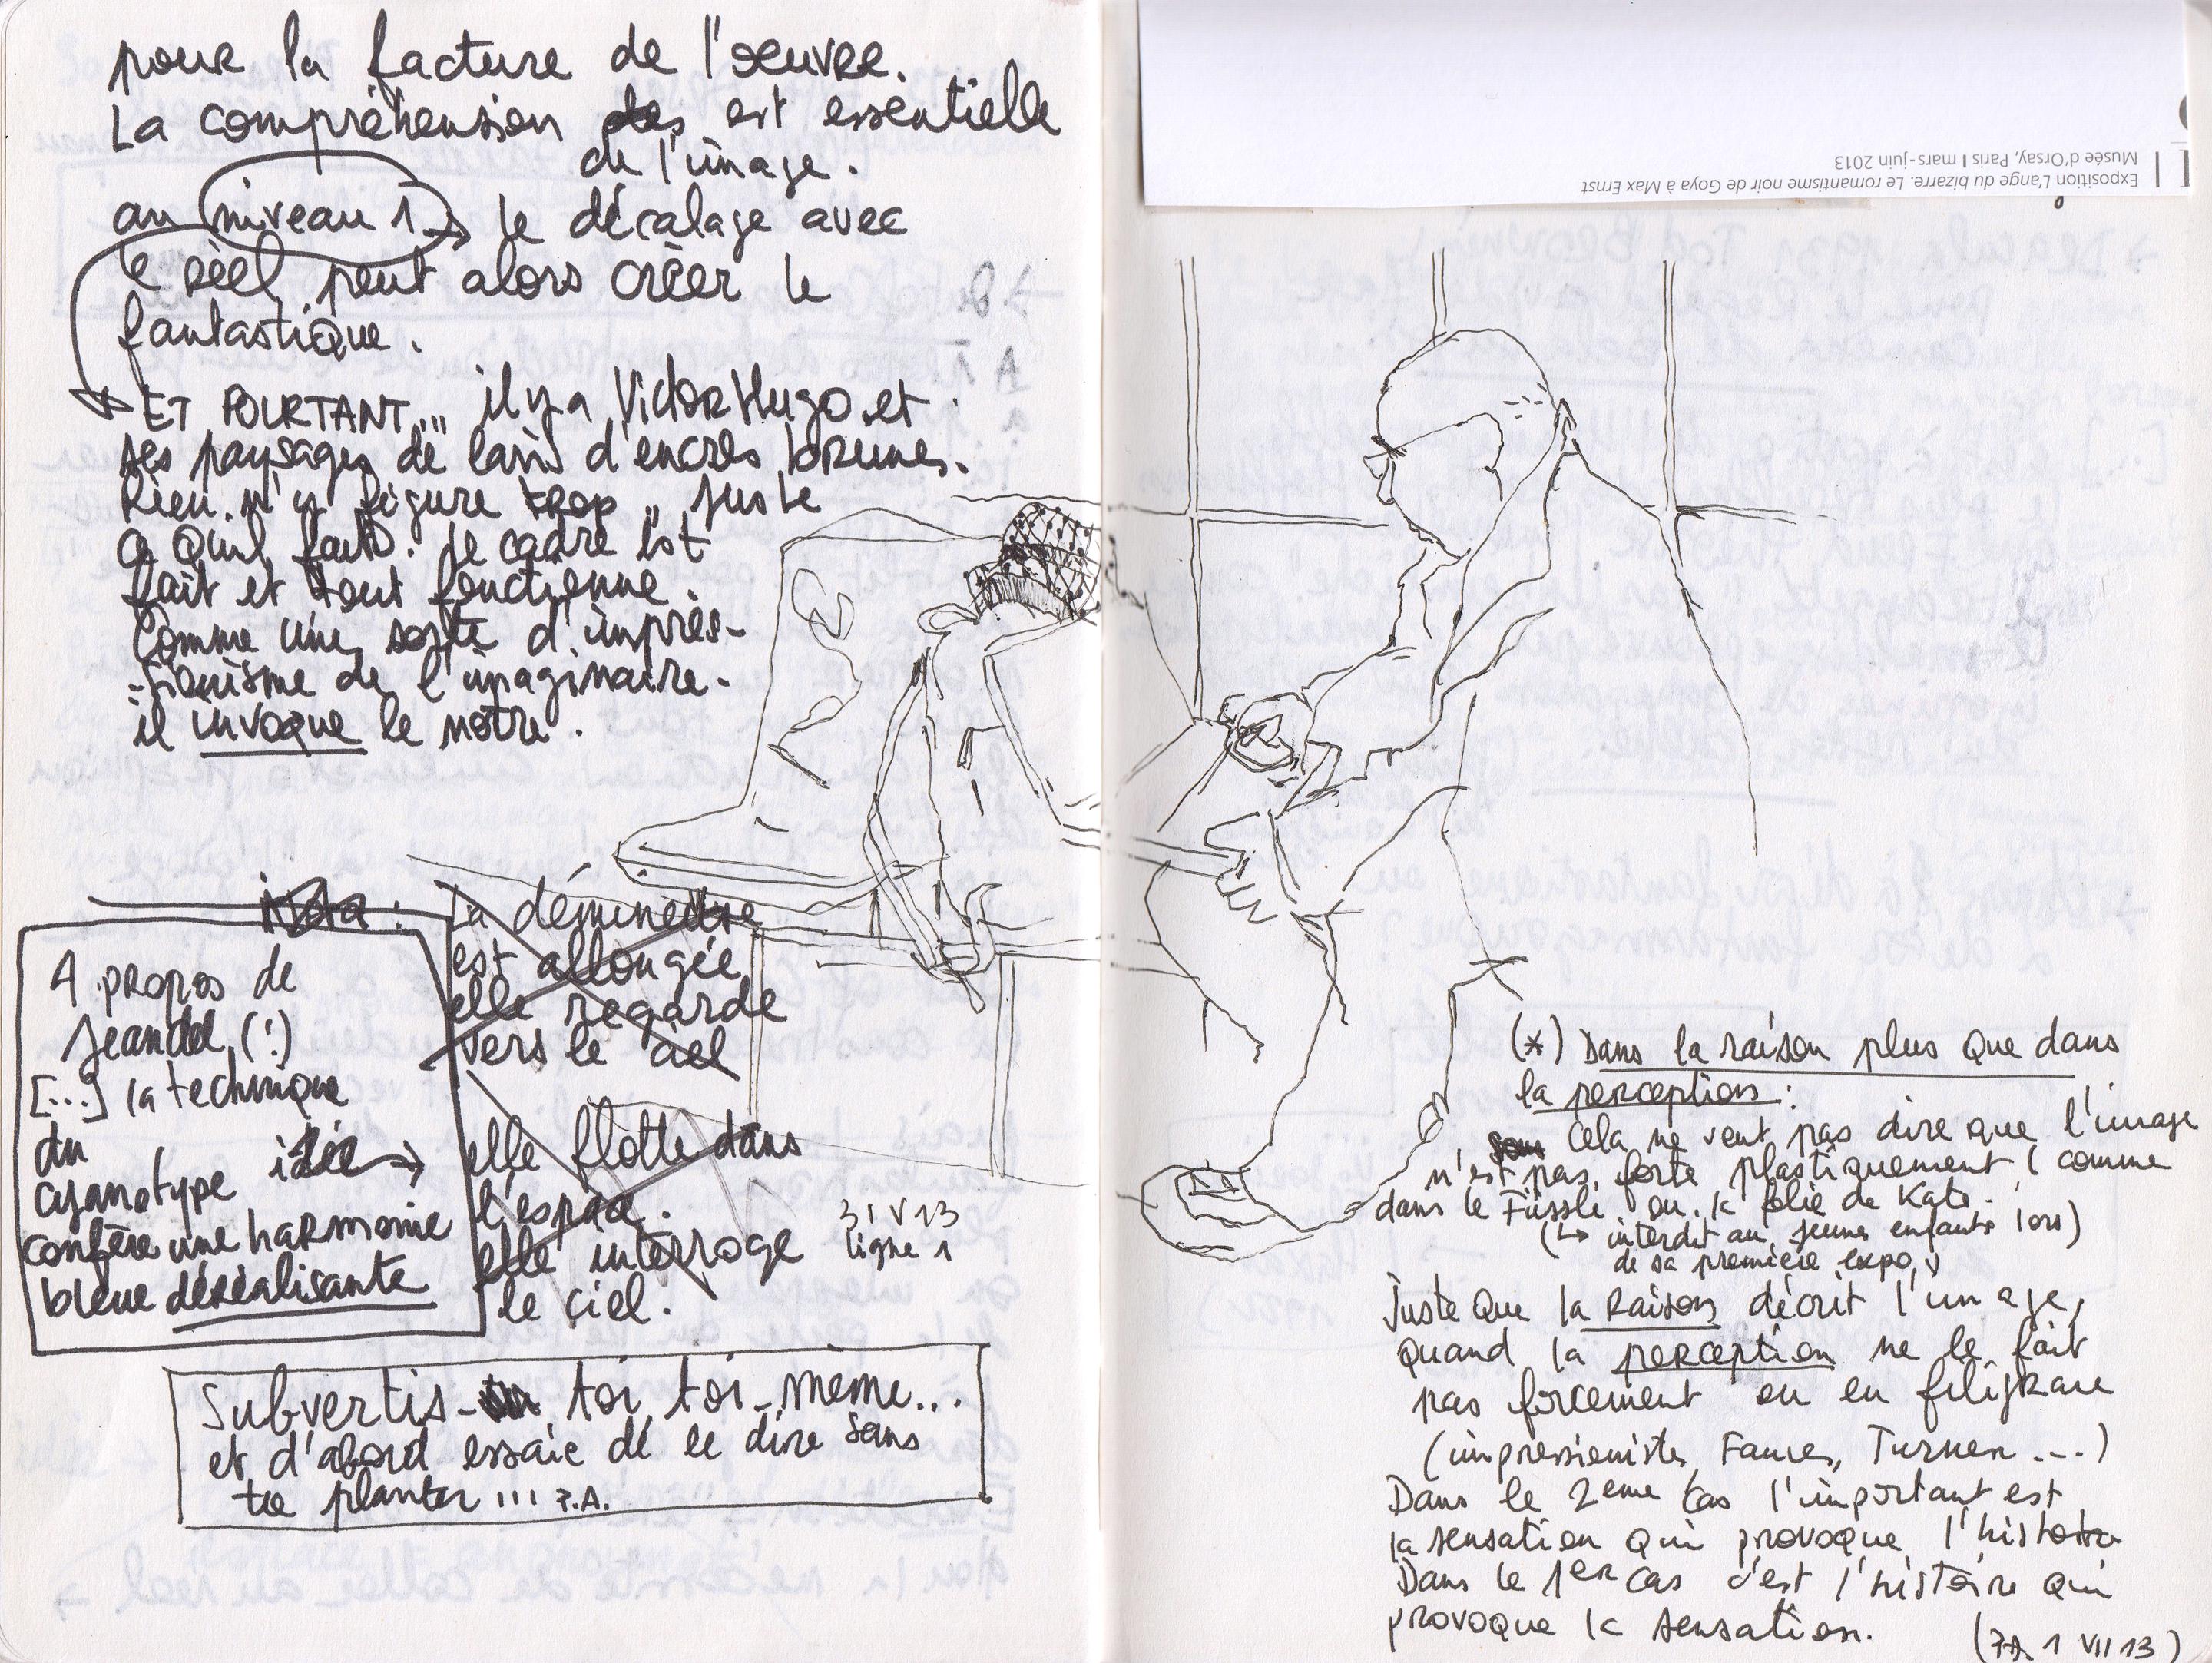 pour la facture de l'oeuvre.
La compréhension est essentielle
de l'image.
au niveau 1 → le décalage avec
le réel peut alors créer le
fantastique.
ET POURTANT... il y a Victor Hugo et
ses paysages de lavis d'encres brunes.
Rien n'y figure trop, juste
ce qu'il faut. le cadre est
fait et tout fonctionne.
Comme une sorte d'impres-
-sionisme de l'imaginaire.
il invoque le nôtre.
nota :
A propos de
Jeandel (!)
[...] la technique
du
cyanotype
confère une harmonie
bleue déréalisante
la
est allongée
elle regarde
vers le ciel
idée →
elle flotte dans
l'espace.
elle interroge
le ciel.
31 V 13
ligne 1
Subvertis-toi toi-même...
et d'abord essaie de le dire sans
te planter !!! P.A.
Exposition L'ange du bizarre. Le romantisme noir de Goya à Max Ernst
Musée d'Orsay, Paris | mars-juin 2013
(*) Dans la raison plus que dans
la perception :
Cela ne veut pas dire que l'image
n'est pas forte plastiquement (comme
dans le Füssli ou la folie de Kate.
(↳ interdit au jeunes enfants lors)
de sa première expo)
Juste que la raison décrit l'image,
quand la perception ne le fait
pas forcement ou en filigrane
(impressioniste, Turner ...)
Dans le 2eme cas l'important est
la sensation qui provoque l'histoire
Dans le 1er cas c'est l'histoire qui
provoque la sensation.
(P.A. 1 VII 13)